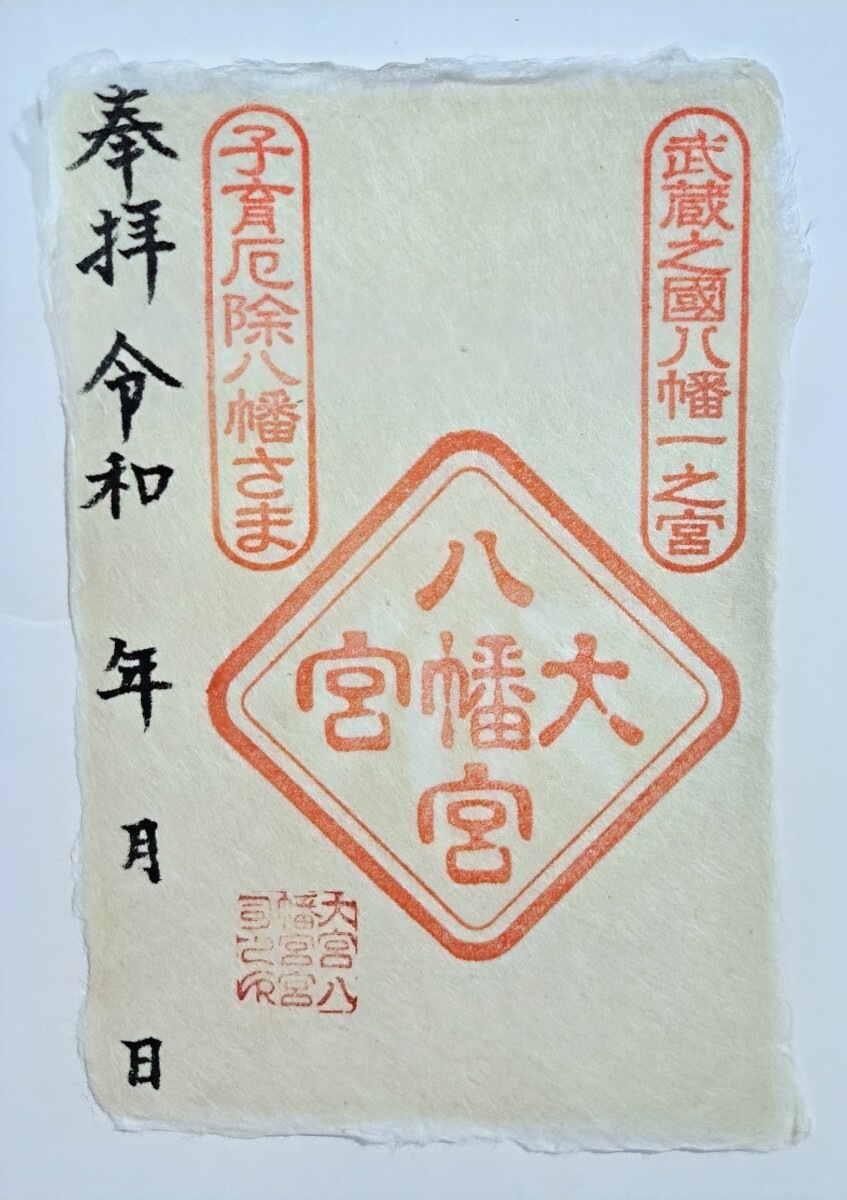 武蔵之國八幡一之宮
大宮
八幡宮
子育厄除八幡さま
大宮八
幡宮宮
司之印
奉拝 令和 年 月 日